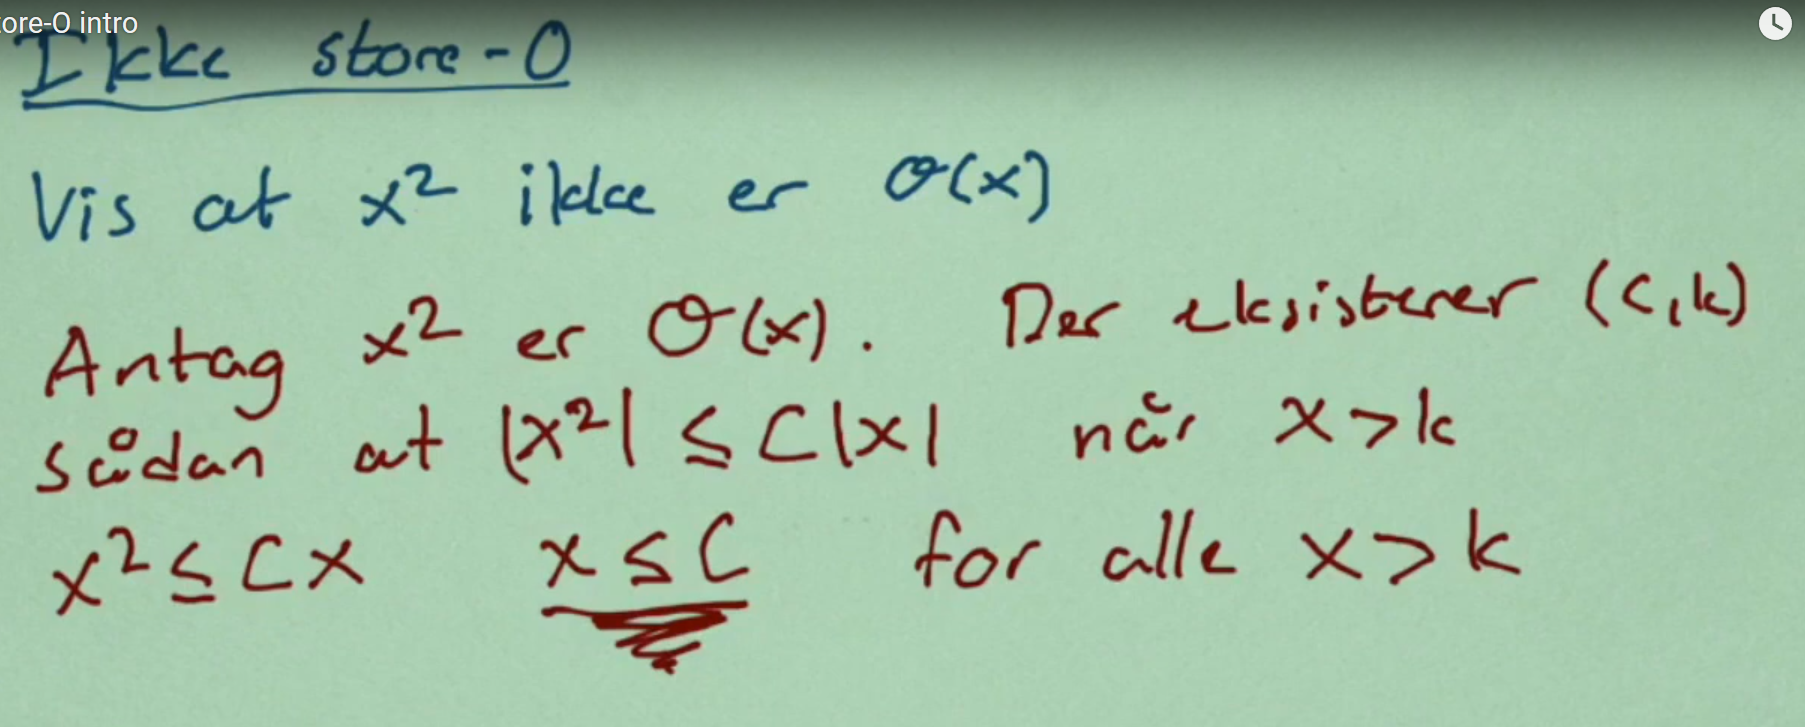 tore-O intro
Ikke store-O
Vis at x² ikke er O(x)
Antag x² er O(x). Der eksisterer (C,k)
sådan at |x²| ≤ C|x| når x>k
x² ≤ Cx x ≤ C for alle x>k